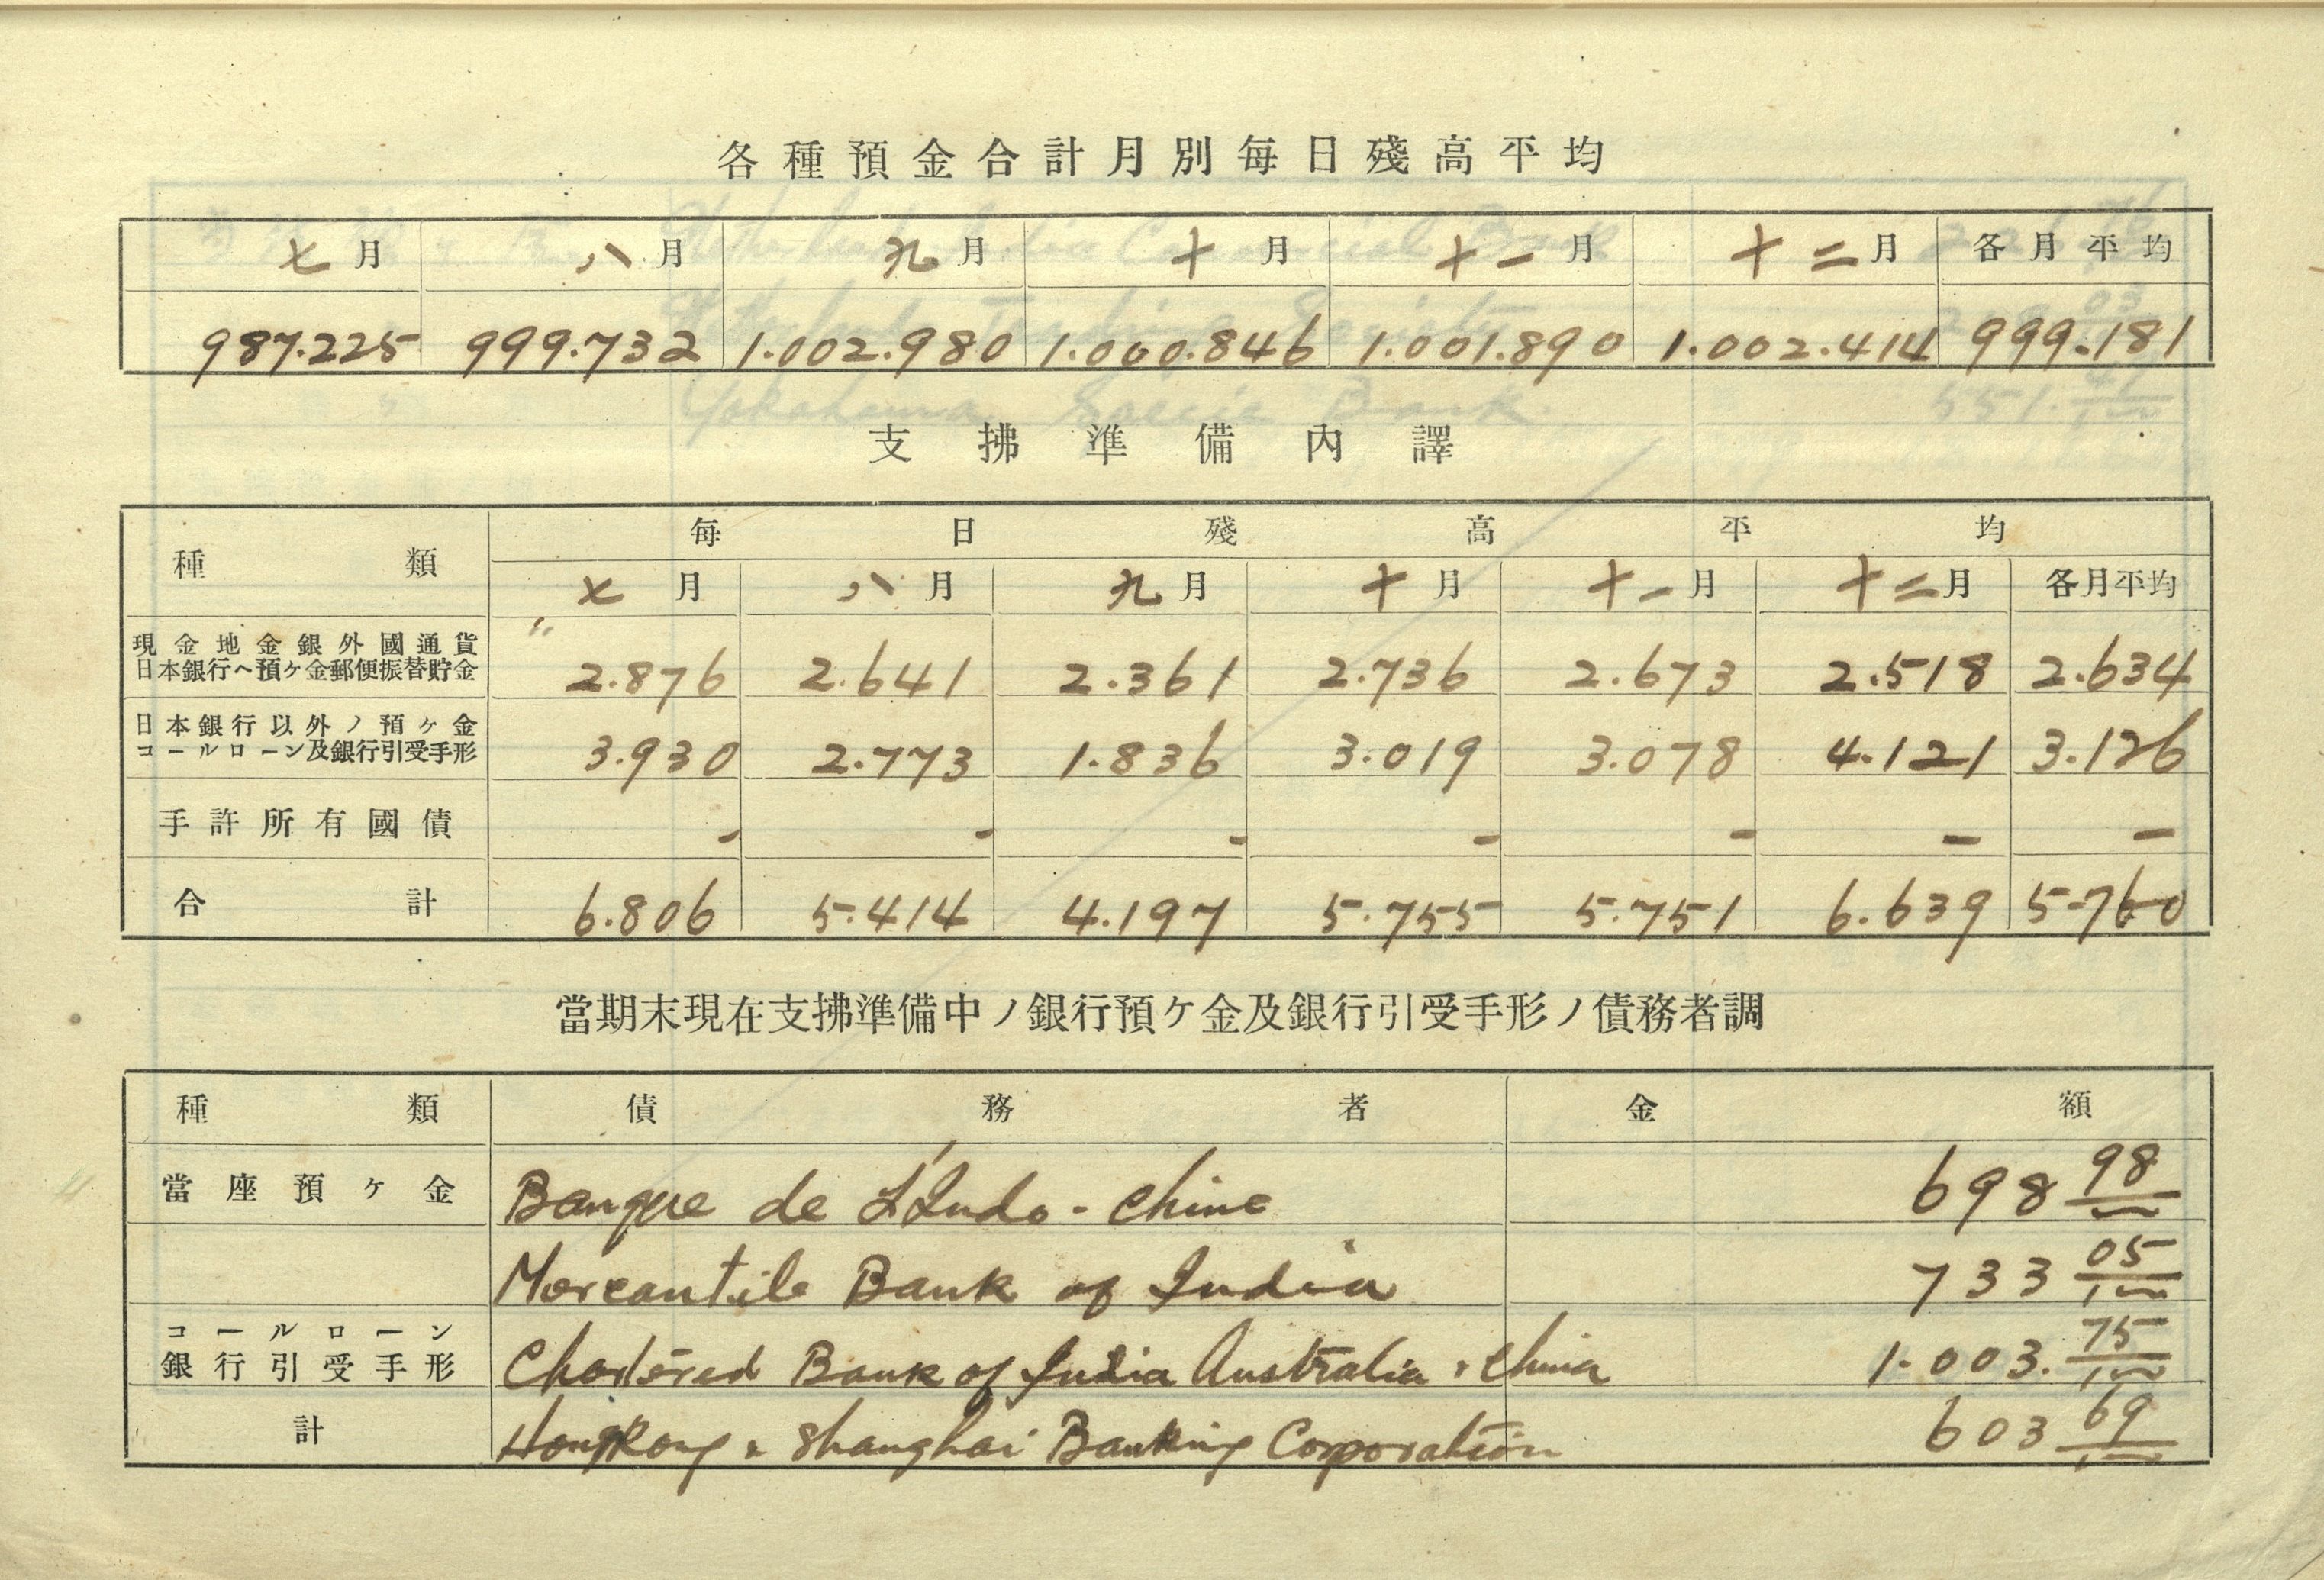 各種預金合計月別毎日殘高平均
七月 八月 九月 十月 十一月 十二月 各月平均
987.225 999.732 1.002.980 1.000.846 1.001.890 1.002.414 999.181
支拂準備内譯
種類 毎日殘高平均
七月 八月 九月 十月 十一月 十二月 各月平均
現金地金銀外國通貨
日本銀行ヘ預ケ金郵便振替貯金 2.876 2.641 2.361 2.736 2.673 2.518 2.634
日本銀行以外ノ預ケ金
コールローン及銀行引受手形 3.930 2.773 1.836 3.019 3.078 4.121 3.126
手許所有國債 - - - - - - -
合計 6.806 5.414 4.197 5.755 5.751 6.639 5-760
當期末現在支拂準備中ノ銀行預ケ金及銀行引受手形ノ債務者調
種類 債務者 金額
當座預ケ金 Banque de L'Indo-chine 698 98
Mercantile Bank of India 733 05/100
コールローン
銀行引受手形 Chartered Bank of India Australia & China 1.003. 75/100
計 Hongkong & Shanghai Banking Corporation 603 69/100